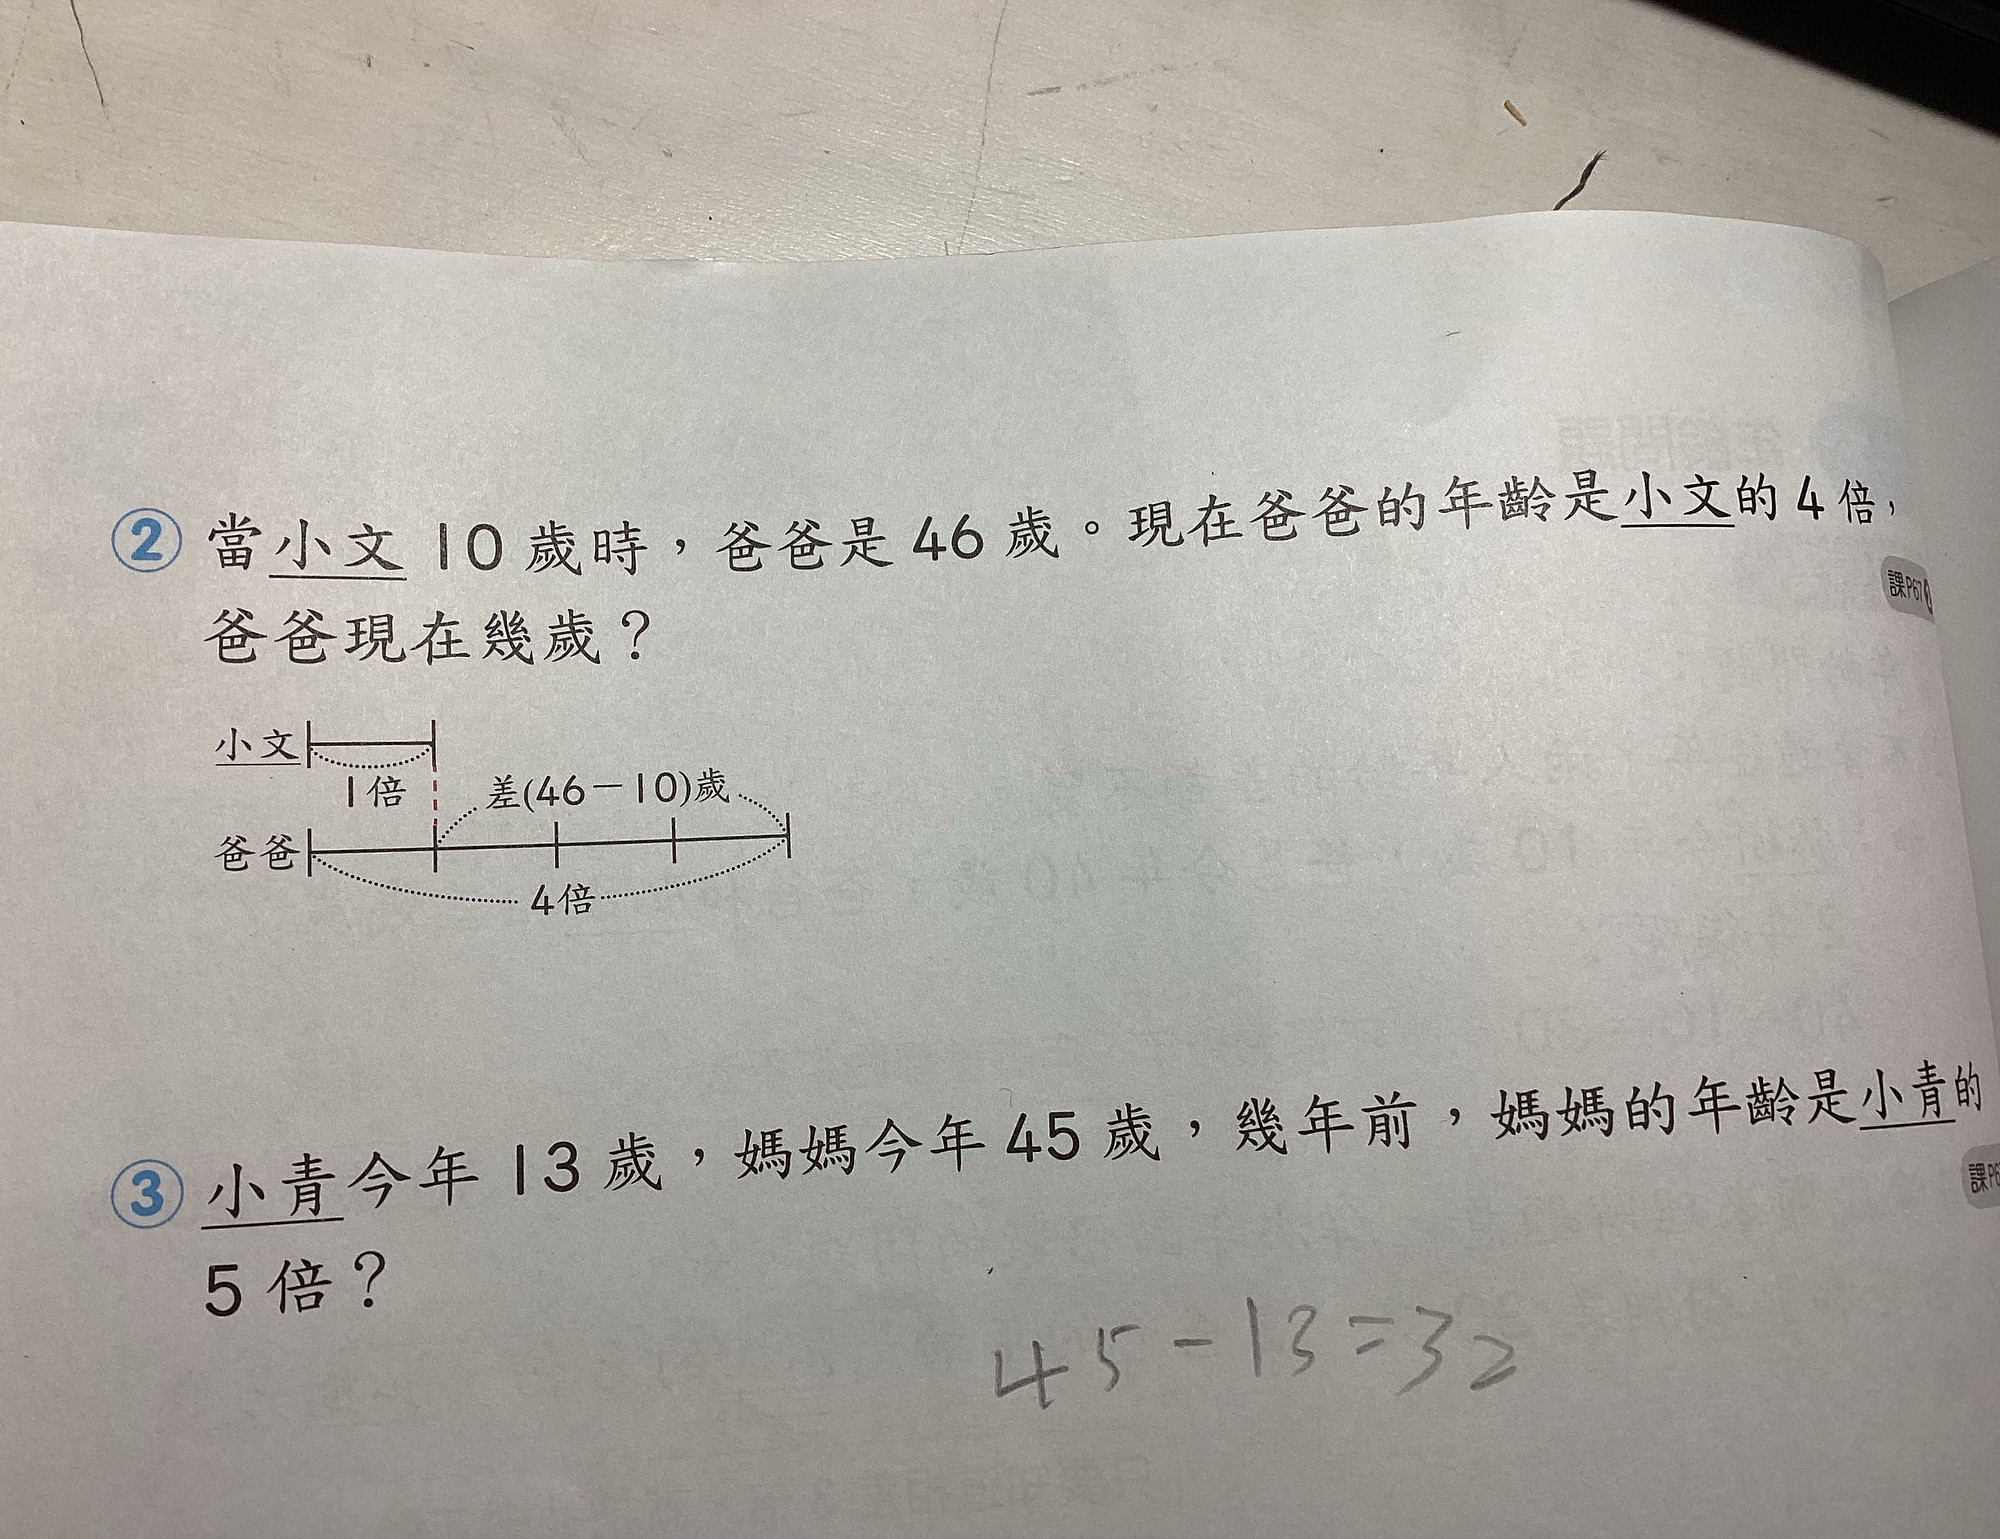 ② 當小文 10 歲時，爸爸是 46 歲。現在爸爸的年齡是小文的 4 倍，
課P67
爸爸現在幾歲？
小文
1倍
差(46－10)歲
爸爸
4倍
③ 小青今年 13 歲，媽媽今年 45 歲，幾年前，媽媽的年齡是小青的
5 倍？
45－13＝32